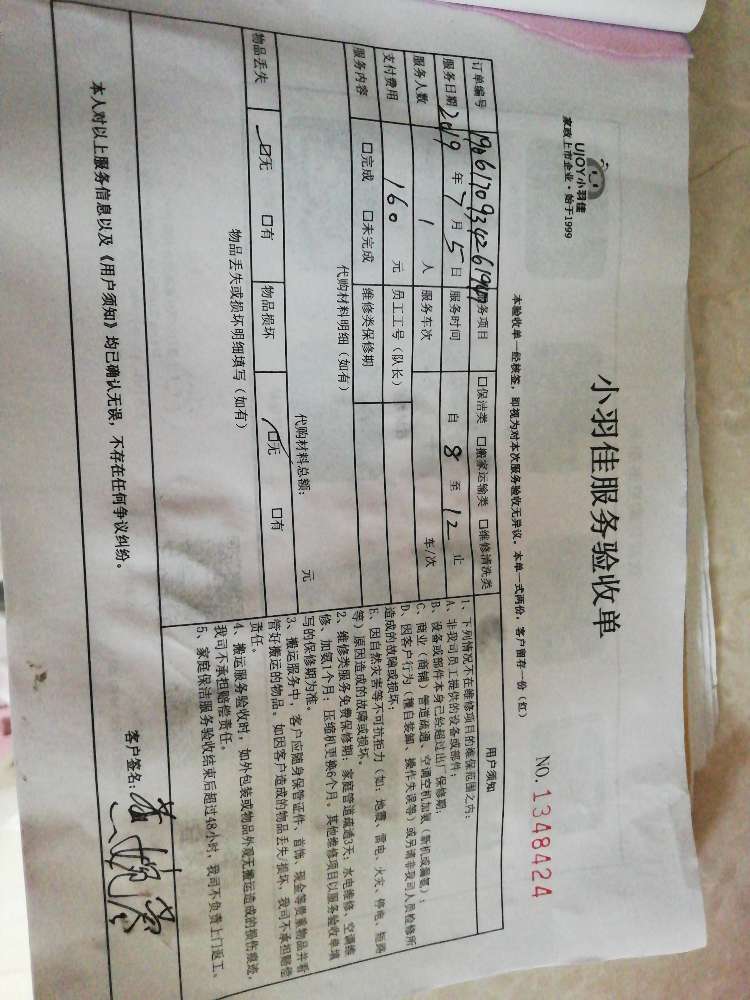 UJOY小羽佳
家政上市企业·始于1999
小羽佳服务验收单
本验收单一经核签，即视为对本次服务验收无异议。本单一式两份，客户留存一份（红）
NO. 1348424
订单编号
服务项目 □保洁类 □搬家运输类 □维修清洗类
服务日期 2019 年 7 月 5 日 服务时间 自 8 至 12 止
服务人数 1 人 服务车次 车/次
支付费用 160 元 员工工号（队长）
服务内容 □完成 □未完成 维修类保修期
代购材料明细（如有）
代购材料总额： 元
物品丢失 ☑无 □有 物品损坏 ☑无 □有
物品丢失或损坏明细填写（如有）
用户须知
1、下列情况不在维修项目的维保范围之内：
A、非我司员工提供的设备或部件；
B、设备或部件本身已经超过出厂保修期；
C、商业（商铺）管道疏通、空调空机加氟（新机或漏氟）；
D、因客户行为（擅自装卸、操作失误等）或另请非我司人员检修所
造成的故障或损坏；
E、因自然灾害等不可抗拒力（如：地震、雷电、火灾、停电、短路
等）原因造成的故障或损坏。
2、维修类服务免费保修期：家庭管道疏通3天；水电维修、空调维
修、加氟1个月；压缩机更换6个月。其他维修项目以服务验收单填
写的保修期为准。
3、搬运服务中，客户应随身保管证件、首饰、现金等贵重物品并看
管好搬运的物品。如因客户造成的物品丢失/损坏，我司不承担赔偿
责任。
4、搬运服务验收时，如外包装或物品外观无搬运造成的损伤痕迹，
我司不承担赔偿责任。
5、家庭保洁服务验收结束后超过48小时，我司不负责上门返工。
本人对以上服务信息以及《用户须知》均已确认无误，不存在任何争议纠纷。
客户签名：